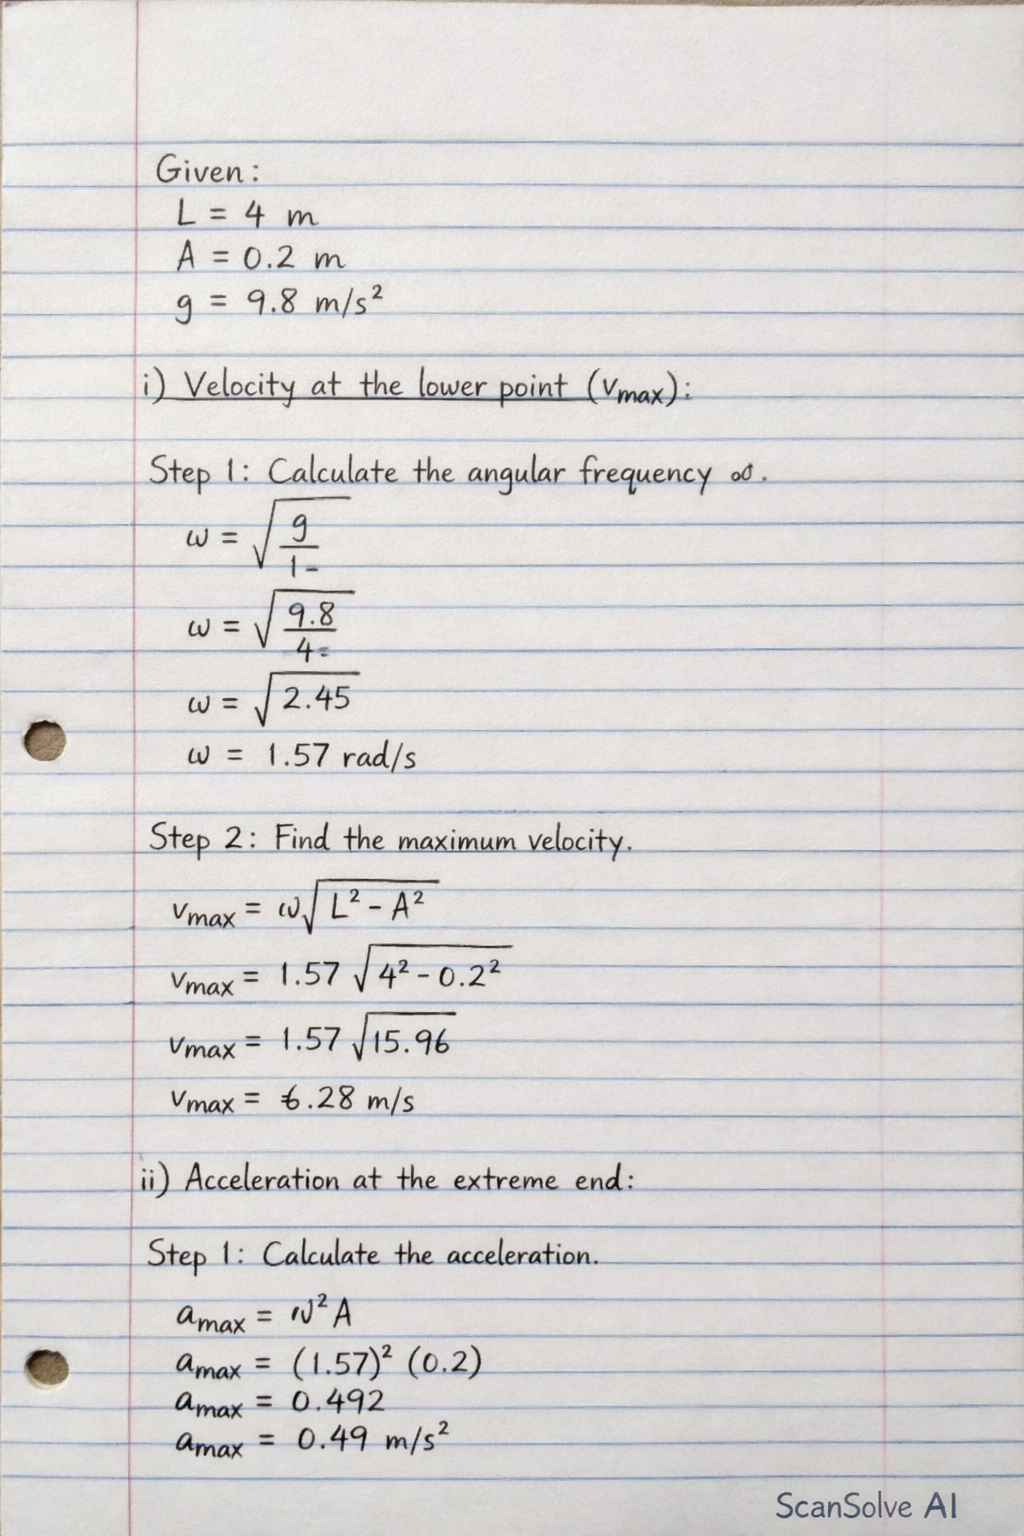 Given:
L = 4 m
A = 0.2 m
g = 9.8 m/s²
i) Velocity at the lower point (vmax):
Step 1: Calculate the angular frequency ω.
ω = √(g/1-)
ω = √(9.8/4=)
ω = √2.45
ω = 1.57 rad/s
Step 2: Find the maximum velocity.
vmax = ω√(L² - A²)
vmax = 1.57 √(4² - 0.2²)
vmax = 1.57 √15.96
vmax = 6.28 m/s
ii) Acceleration at the extreme end:
Step 1: Calculate the acceleration.
amax = ω² A
amax = (1.57)² (0.2)
amax = 0.492
amax = 0.49 m/s²
ScanSolve AI